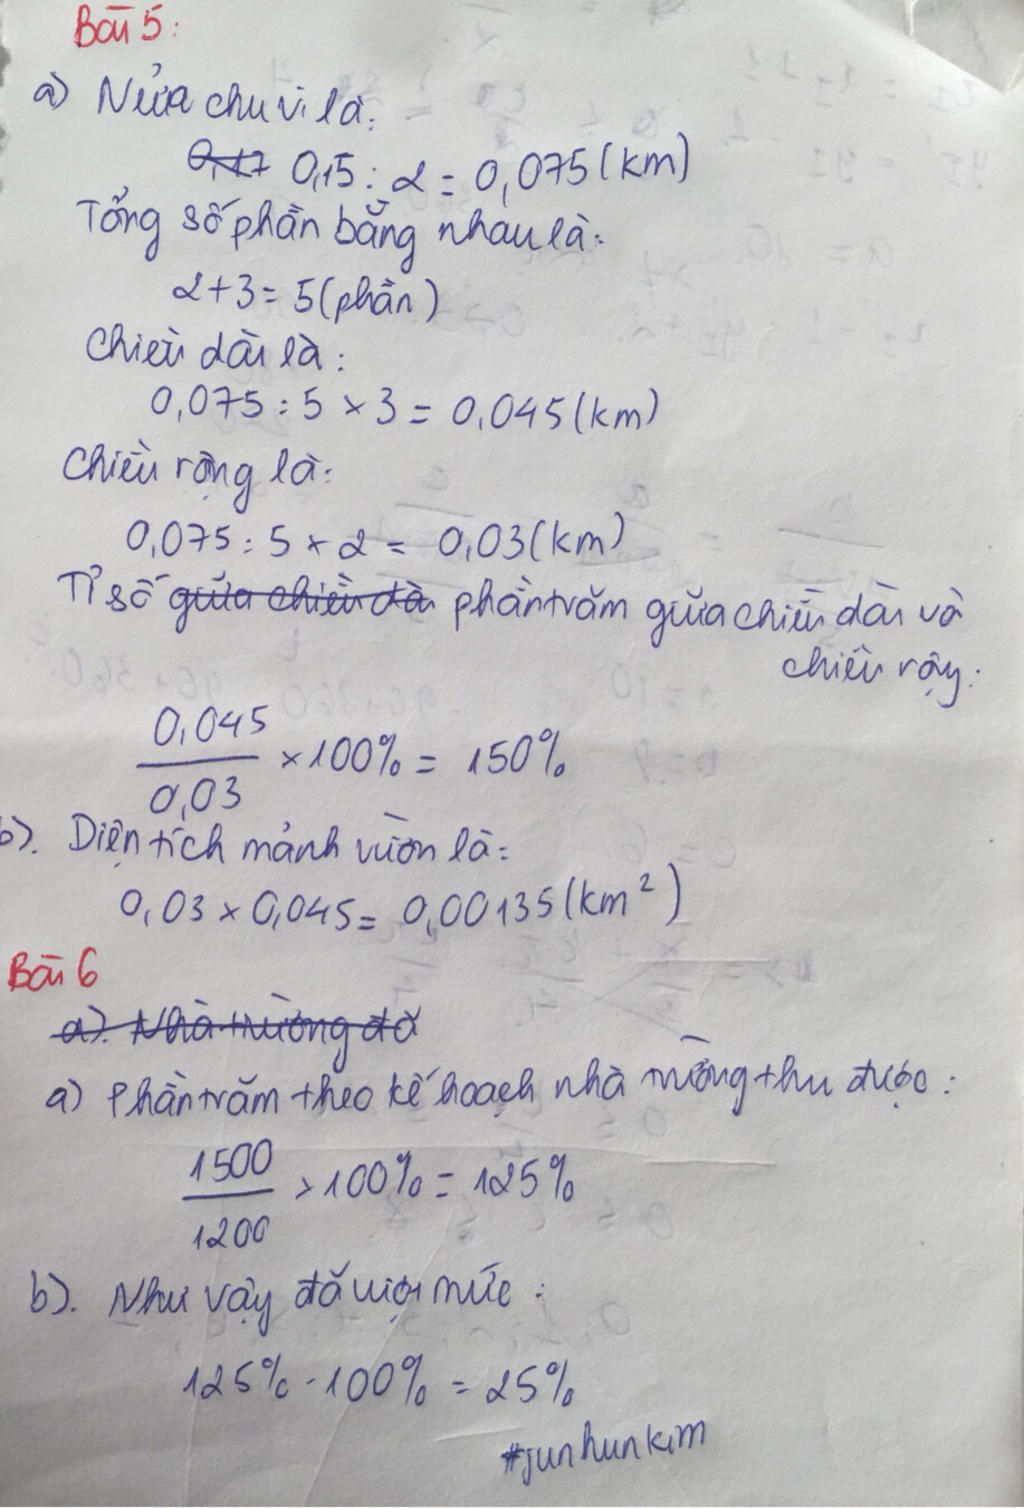 Bài 5:
a) Nửa chu vi là:
0,17 0,15 : 2 = 0,075 (km)
Tổng số phần bằng nhau là:
2 + 3 = 5 (phần)
Chiều dài là:
0,075 : 5 × 3 = 0,045 (km)
Chiều rộng là:
0,075 : 5 × 2 = 0,03 (km)
Tỉ số giữa chiều dài phần trăm giữa chiều dài và
chiều rộng:
0,045
× 100% = 150%
0,03
b). Diện tích mảnh vườn là:
0,03 × 0,045 = 0,00135 (km²)
Bài 6
a). Nhà trường đã
a) Phần trăm theo kế hoạch nhà trường thu được:
1500
× 100% = 125%
1200
b). Như vậy đã vượt mức:
125% - 100% = 25%
#junhunkim